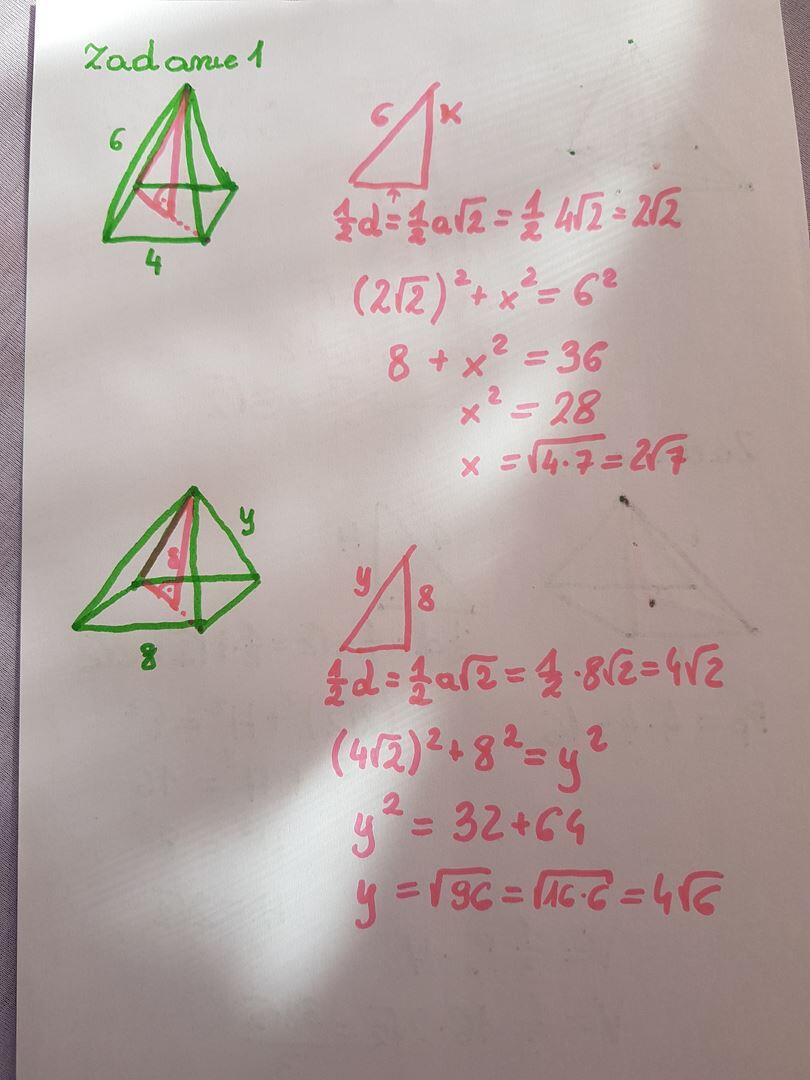 Zadanie 1
6
4
6 x
½d = ½a√2 = ½ 4√2 = 2√2
(2√2)² + x² = 6²
8 + x² = 36
x² = 28
x = √4·7 = 2√7
y
8
8
y 8
½d = ½a√2 = ½·8√2 = 4√2
(4√2)² + 8² = y²
y² = 32+64
y = √96 = √16·6 = 4√6